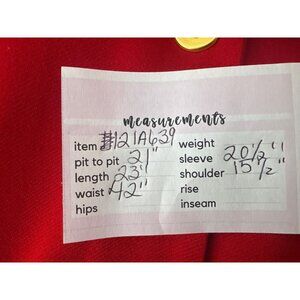 measurements
item #121A639
pit to pit 21"
length 23"
waist 42"
hips
weight
sleeve 20 1/2"
shoulder 15 1/2"
rise
inseam